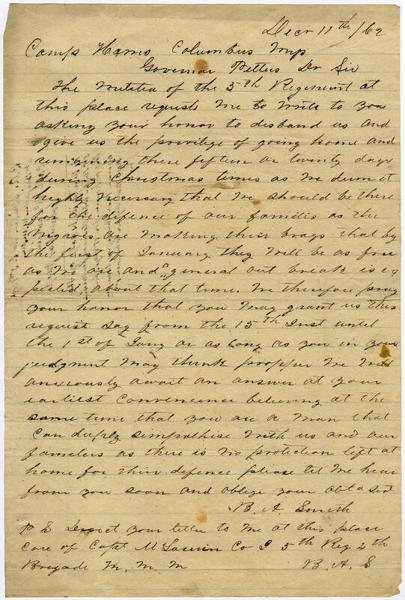 Decr 11th /62
Camp Harris Columbus Mip
Govenor Pettus Dr Sir
The Militia of the 5th Regiment at
this place requests Me to Write to you
asking your honor to disband us and
give us the privilege of going home and
remaining there fifteen or twenty days
during Christmas times as We deem it
highly necessary that We should be there
for the defence of our families as the
Negroes are Making their brags that by
the first of January they Will be as free
as We are and a general out break is ex
pected about that time We therefore pray
your honor that you May grant us this
request Say from the 15th Inst until
the 1st of Jany or as long as you in your
judgment May think propper We Will
anxiously await an answer at your
earliest Convenience believing at the
same time that you are a Man that
Can deeply simpathise With us and our
familers as there is No protection left at
home for their defence please let Me hear
from you soon and oblige your Obt Svt
B. A. Smith
P S Direct your letter to Me at this place
Care of Capt Co 5th Reg 4th
Brigade M. M. M B. A. S